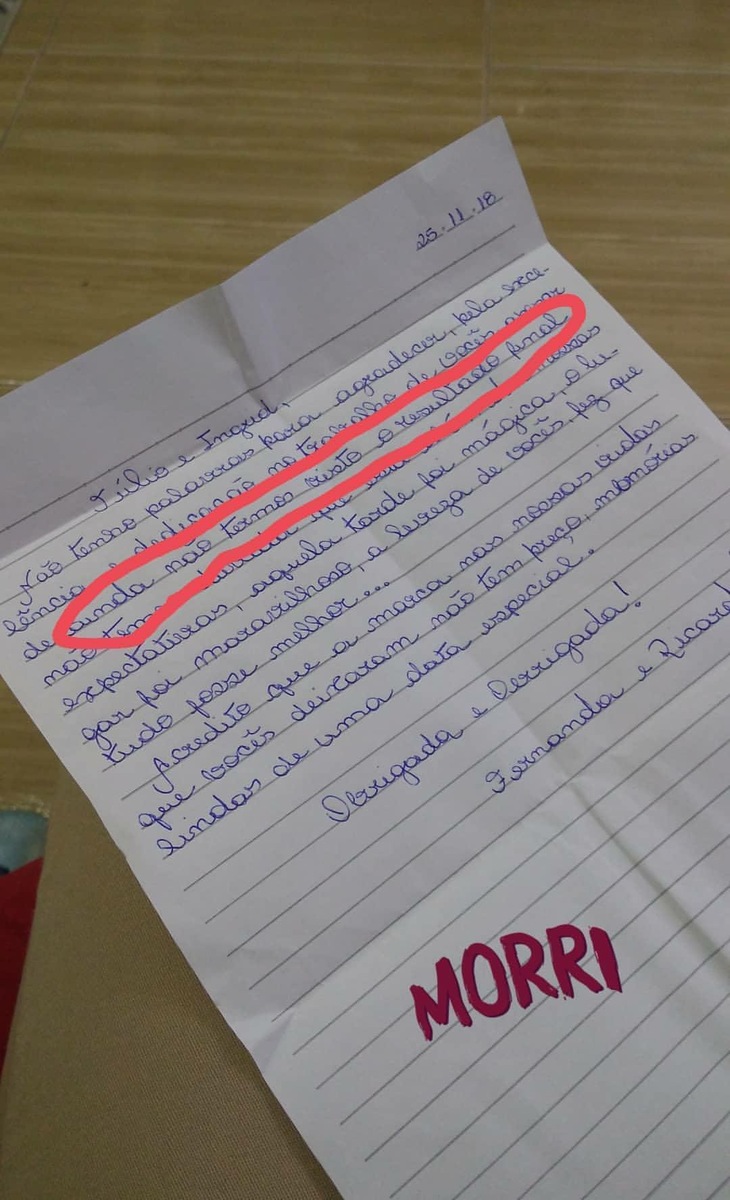 25.11.18
Túlio e Ingrid,
Não tenho palavras para agradecer, pela exce-
lência e dedicação no trabalho de vocês apesar
de ainda não termos visto o resultado final
não temos que nossas
expectativas, aquela tarde foi mágica, o lu-
gar foi maravilhoso, a leveza de vocês fez que
tudo fosse melhor...
Acredito que a marca nas nossas vidas
que vocês deixaram não tem preço, memórias
lindas de uma data especial.
Obrigada e Obrigada!
Fernanda e Ricard
MORRI